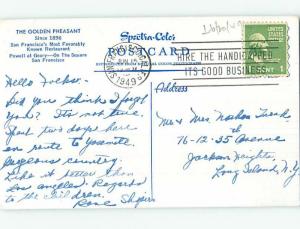 THE GOLDEN PHEASANT
Since 1896
San Francisco's Most Favorably
Known Restaurant
Powell at Geary—On the Square
San Francisco
Spectra-Color
POSTCARD
SAN FRANCISCO CALIF.
1949
HIRE THE HANDICAPPED
IT'S GOOD BUSINESS
1 CENT 1
Address
Hello Folks:
Did you think I forgot
you? It's not true
Just two days here
en route to Yosemite.
Gorgeous country.
Like it better than
Los Angeles. Regards
to the children.
Rose
Mr & Mrs Nathan
76-12-35 Avenue
Jackson Heights,
Long Island, N.Y.